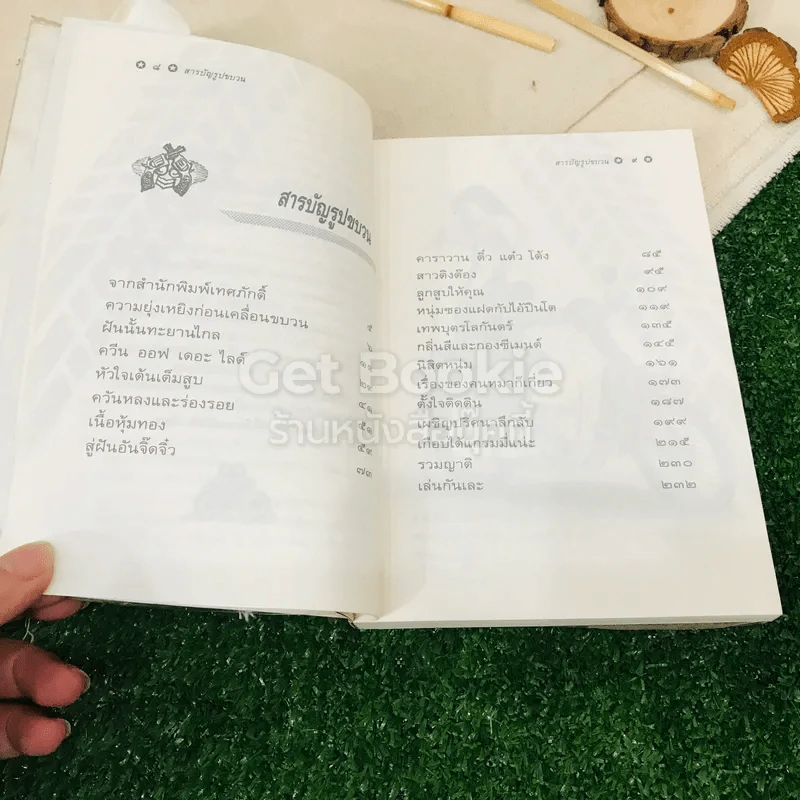 ✪ ๘ ✪ สารบัญรูปขบวน
สารบัญรูปขบวน
จากสำนักพิมพ์เทศภักดิ์ ๕
ความยุ่งเหยิงก่อนเคลื่อนขบวน ๖
ฝันนั้นทะยานไกล
ควีน ออฟ เดอะ ไลด์
หัวใจเต้นเต็มสูบ
ควันหลงและร่องรอย ๔๑
เนื้อหุ้มทอง ๕๑
สู่ฝันอันจิ๊ดจิ๋ว ๕๙
๗๓
สารบัญรูปขบวน ✪ ๙ ✪
คาราวาน ติ๋ว แต๋ว โด้ง ๘๕
สาวติงต๊อง ๙๕
ลูกสูบให้คุณ ๑๐๙
หนุ่มซองแฝดกับไอ้ปืนโต ๑๑๙
เทพบุตรโลกันตร์ ๑๓๕
กลิ่นสีและกองซีเมนต์ ๑๔๕
นิสิตหนุ่ม ๑๖๑
เรื่องของคนหมาก็เกี่ยว ๑๗๓
ตั้งใจติดดิน ๑๘๗
เผชิญปริศนาลึกลับ ๑๙๙
เกือบได้แกรมมี่แน่ะ ๒๑๕
รวมญาติ ๒๓๐
เล่นกันเละ ๒๓๒
Get Bookie
ร้านหนังสือกุ๊กกี้